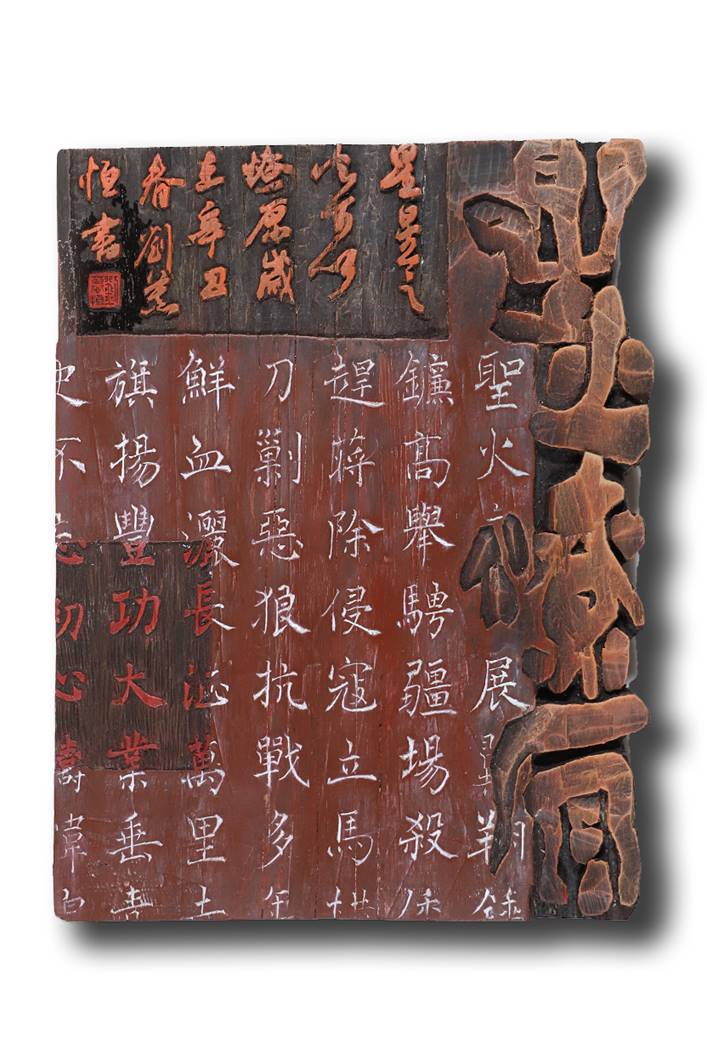 星火燎原
星星之
火可以
燎原歲
在辛丑
春劉
恒書
聖火展翼翔
鐮高舉騁疆場殺
趕蔣除侵寇立馬
刀剿惡狼抗戰多年
鮮血灑長萬里土
旗揚豐功大業垂青
史不忘初心鑄偉